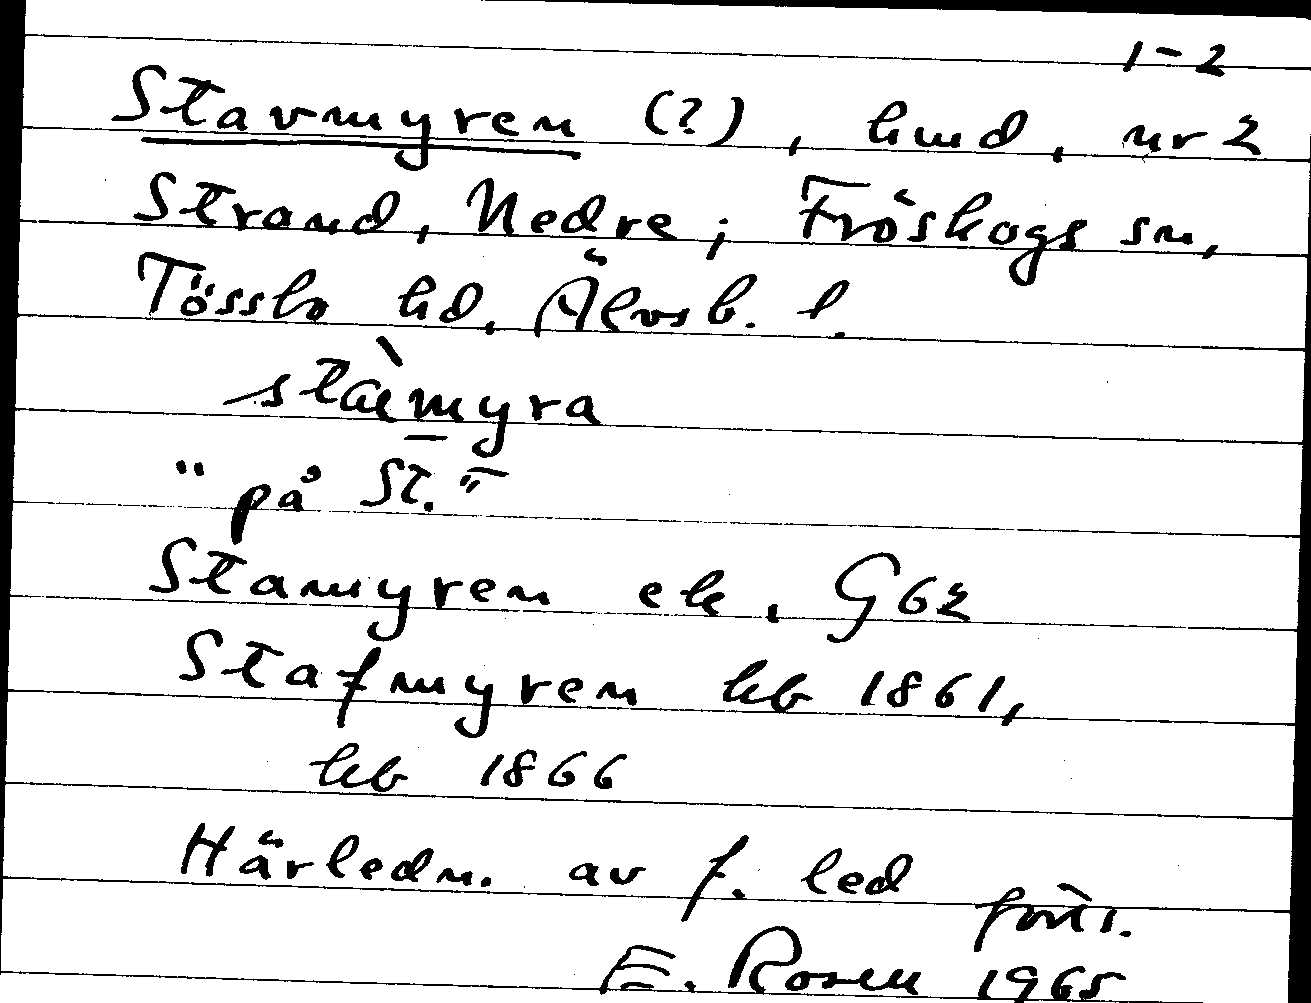 1-2
Stavmyren (?), hmd, nr 2
Strand, Nedre; Fröskogs sn,
Tössbo hd, Älvsb. l.
stàmyra
"på St."
Stamyren ek, G62
Stafmyren hb 1861,
hb 1866
Härledn. av f. led forts.
E. Rosen 1965